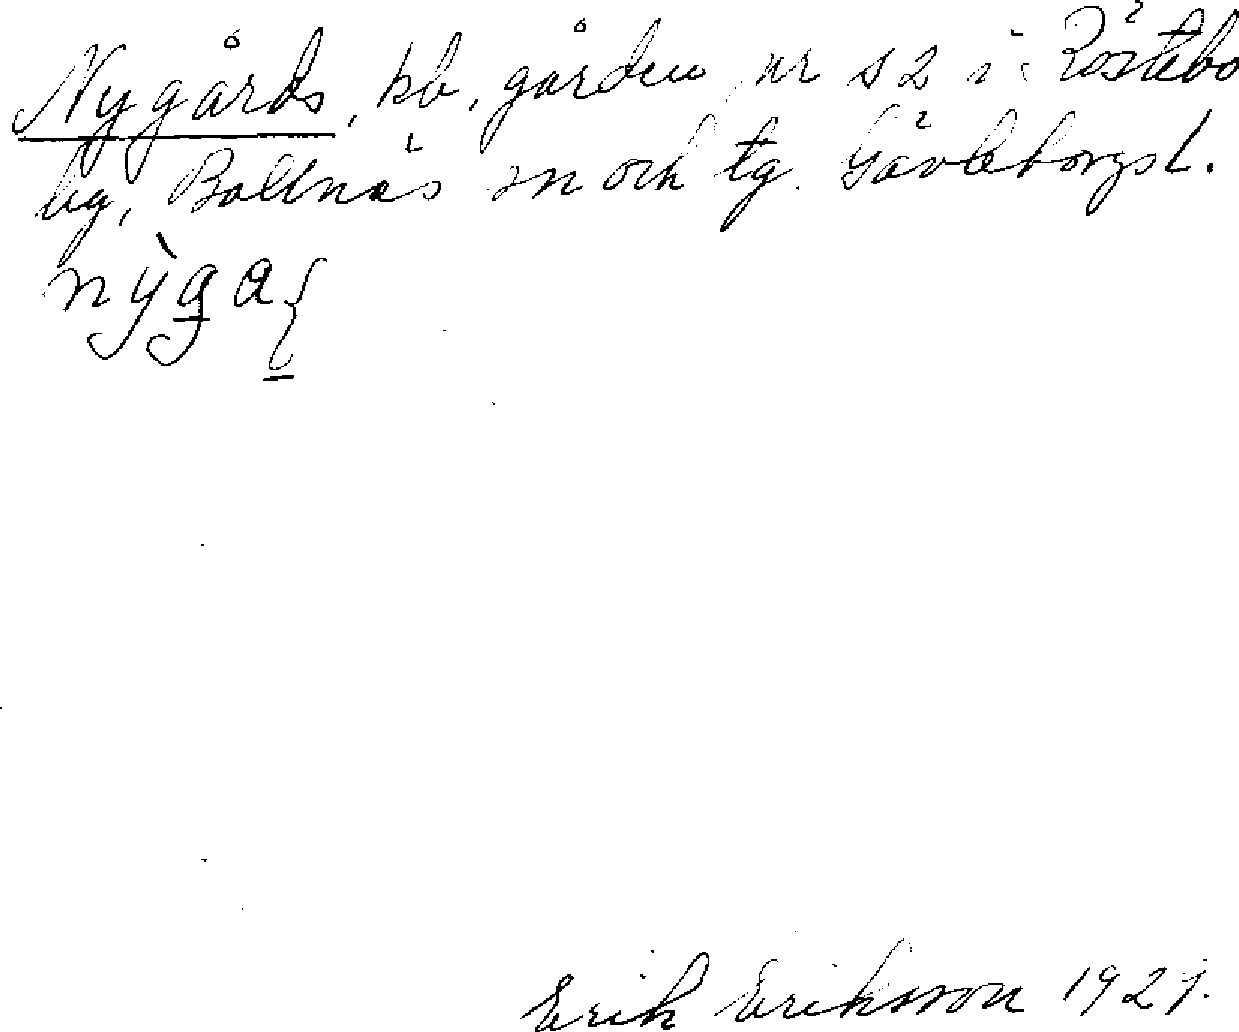 Nygårds, bb, gården nr 12 i Röstebo
by, Bollnäs sn och tg. Gävleborgs l.
nỳga
Erik Eriksson 1927.